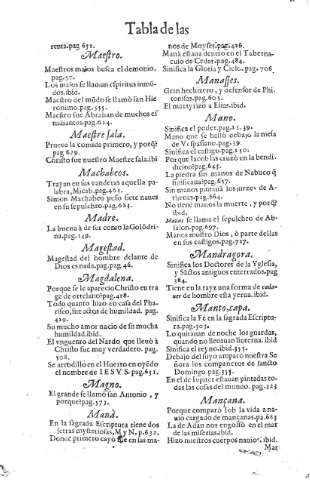 Tabla de las
renta.pag.651.
Maestro.
Maestros malos busca el demonio.
pag.57.
Los malos se llaman espiritus inmũ-
dos.ibid.
Maestro del mũdo se llamò san Hie
ronimo.pag.555.
Maestro fue Abrahan de muchos est
pag.614.
Maestre sala.
Prueva la comida primero, y porq̃
pag 629.
Christo fue nuestro Maestre sala.ibi
Machabeos.
Trayan en sus vanderas aquella pa-
labra, Macab.pag.405.
Simon Machabeo puso siete naues
en su sepulchro.pag.683.
Madre.
La buena à de ser como la Golõdri-
na.pag.149.
Magestad.
Magestad del hombre delante de
Dios es nada.pag.46.
Magdalena.
Porque se le aparecio Christo en tra
ge de ortelano pag.428.
Todo quanto hizo en casa del Pha-
risco, fue actos de humildad. pag.
429.
So mucho amor nacio de su mucha
humildad.ibid.
El vnguento del Nardo que lleuò à
Christo fue muy verdadero. pag.
508.
Se arrodillò en el Huerto en oyẽdo
el nombre de IESVS.pag.651.
Magno.
El grande se llamò san Antonio , y
porque?pag.573.
Manà.
En la sagrada Escriptura tiene dos
letras mysteriosas, M y N.p.632.
Donde primero cayò fue en las ma-
nos de Moyses.pag.426.
Manà estaua dentro en el Taberna-
culo de Ceder.pag.484.
Sinifica la Gloria y Cielo.pag.706
Manasses.
Gran hechizero , y defensor de Phi-
tonisas.pag.605.
El martyrizò a Esai.ibid.
Mano.
Sinifica el poder.pag.15.39.
Mano que se hallò debajo la mesa
de Vspasiano.pag.39.
Sinifica el castigo.pag.150.
Porque Iacob las cruzò en la bendi-
cion?pag.635.
La piedra sin manos de Naboco q̃
sinificaua?pag.657.
Sin manos pintauã los juezes de A-
pag.664.
No tiene manos la muerte , y porq̃
ibid.
Manos se llama el sepulchro de Ab-
salon.pag.697.
Manos mostro Dios , ò parte dellas
en sus castigos.pag.717.
Mandragora.
Sinifica los Doctores de la Yglesia,
y Sãctos antiguos enterrados.pag
384.
Tiene en la rayz una forma de cada-
uer de hombre esta yerua.ibid.
Manto, capa.
Sinifica la Fè en la sagrada Escriptu-
ra.pag.303.
Lo quitaran de noche los guardas,
quando no lleuauan linterna.ibid
Sinifica el reyno.ibid.355.
Debajo del suyo amparò nuestra Se
ñora los compañeros de sancto
Domingo pag.355.
En el de Iupiter estauan pintadas to-
das las cosas del mundo. pag.123
Mançana.
Porque comparò Iob la vida a na-
uio cargado de mançanas.pag.663
La de Adan nos engolfò en el mar
de las miserias.ibid.
Hizo nuestros cuerpos nauios.ibid.
Mar